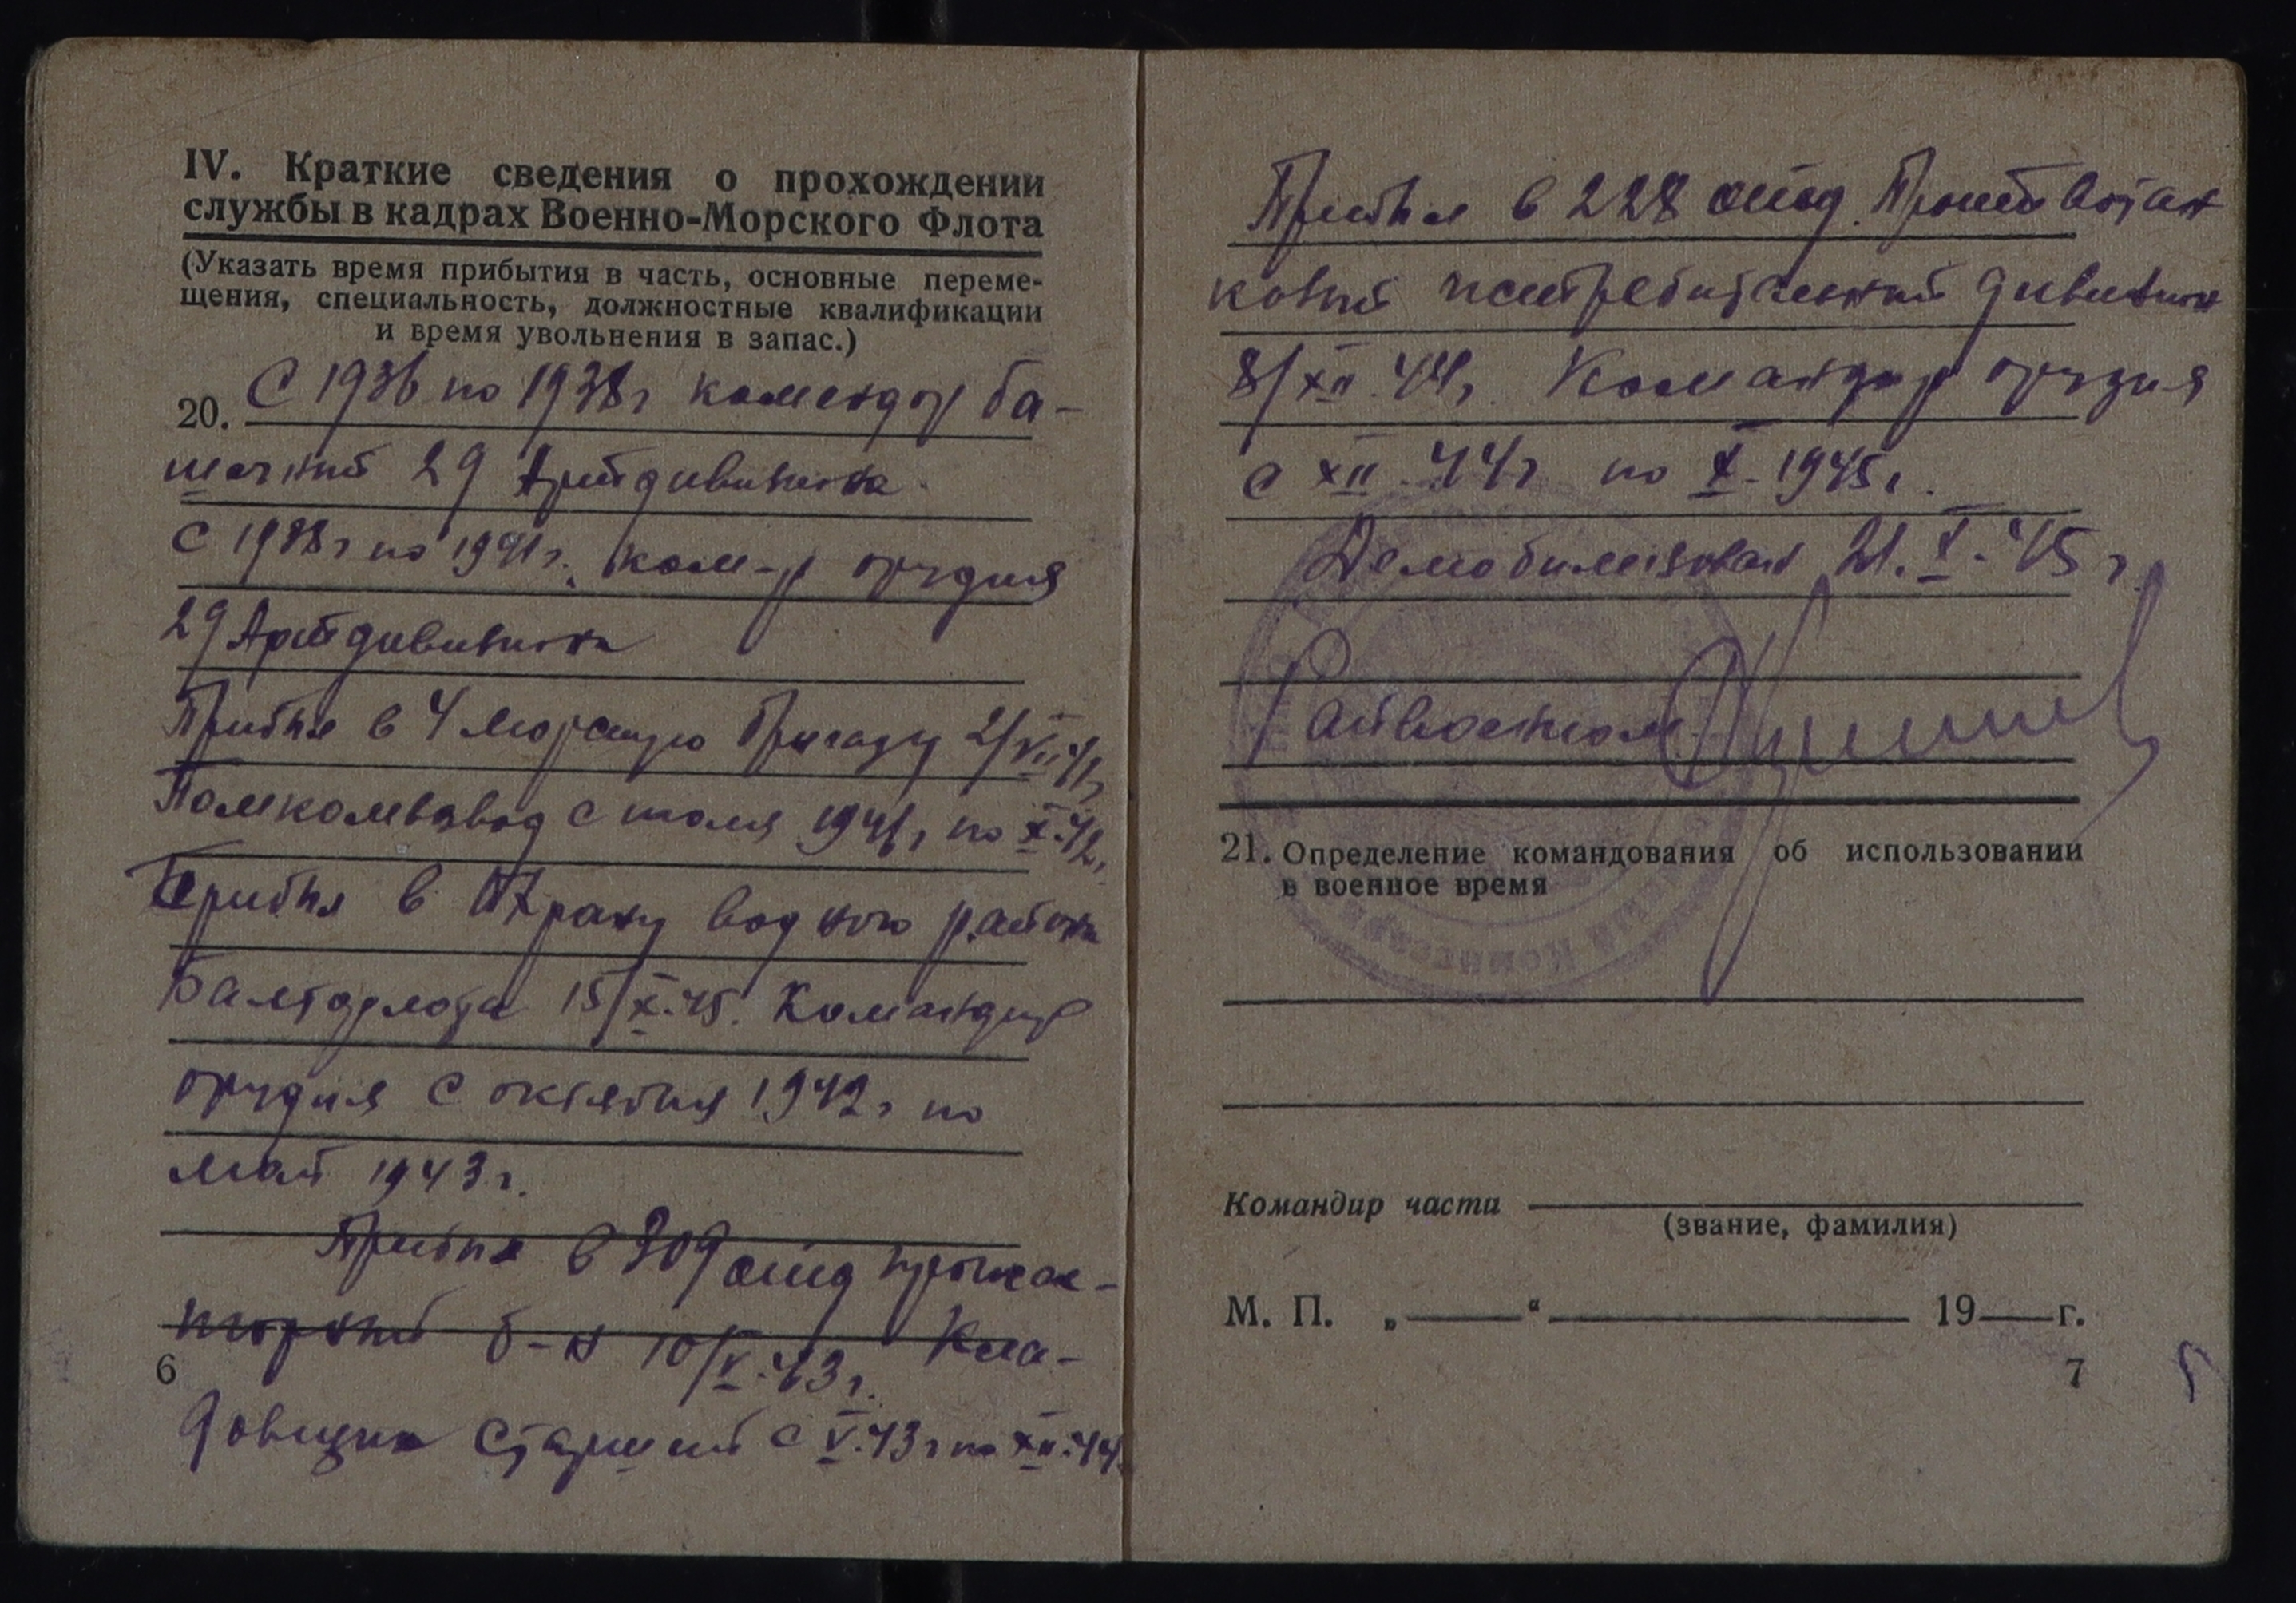 IV. Краткие сведения о прохождении
службы в кадрах Военно-Морского Флота
(Указать время прибытия в часть, основные переме-
щения, специальность, должностные квалификации
и время увольнения в запас.)
20. С 1936 по 1938г комендор ба-
шенный 29 Артдивизиона.
С 1938г по 1941г. ком-р орудия
29 Артдивизиона
Прибыл в 4 морскую бригаду 2/VII 41г
Помкомвзвод с июля 1941г по X.42г.
Прибыл в Охрану водного района
Балтфлота 15/X.45. Командир
орудия с октября 1942г по
май 1943г.
Прибыл в 309 отд прожек-
торный б-н 10/V.43г. Кла-
довщик старший с V.43г по XII.44
6
Прибыл в 228 отд. Противотан
ковый истребительный дивизион
8/XII.44г. Командир орудия
с XII.44г по X.1945г.
Демобилизован 21.X.45г.
Райвоенком
21. Определение командования об использовании
в военное время
Командир части
(звание, фамилия)
М. П. „ “ 19 г.
7